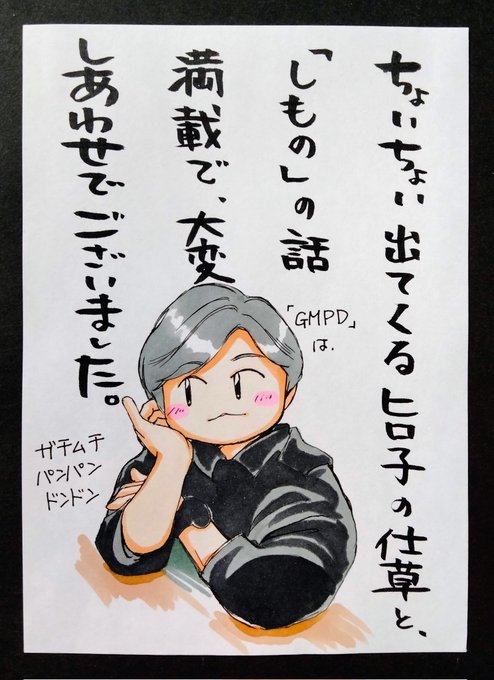 ちょいちょい出てくるヒロ子の仕草と、
「しもの」の話
満載で、大変
しあわせでございました。
「GMPD」
は、
ガチムチ
パンパン
ドンドン